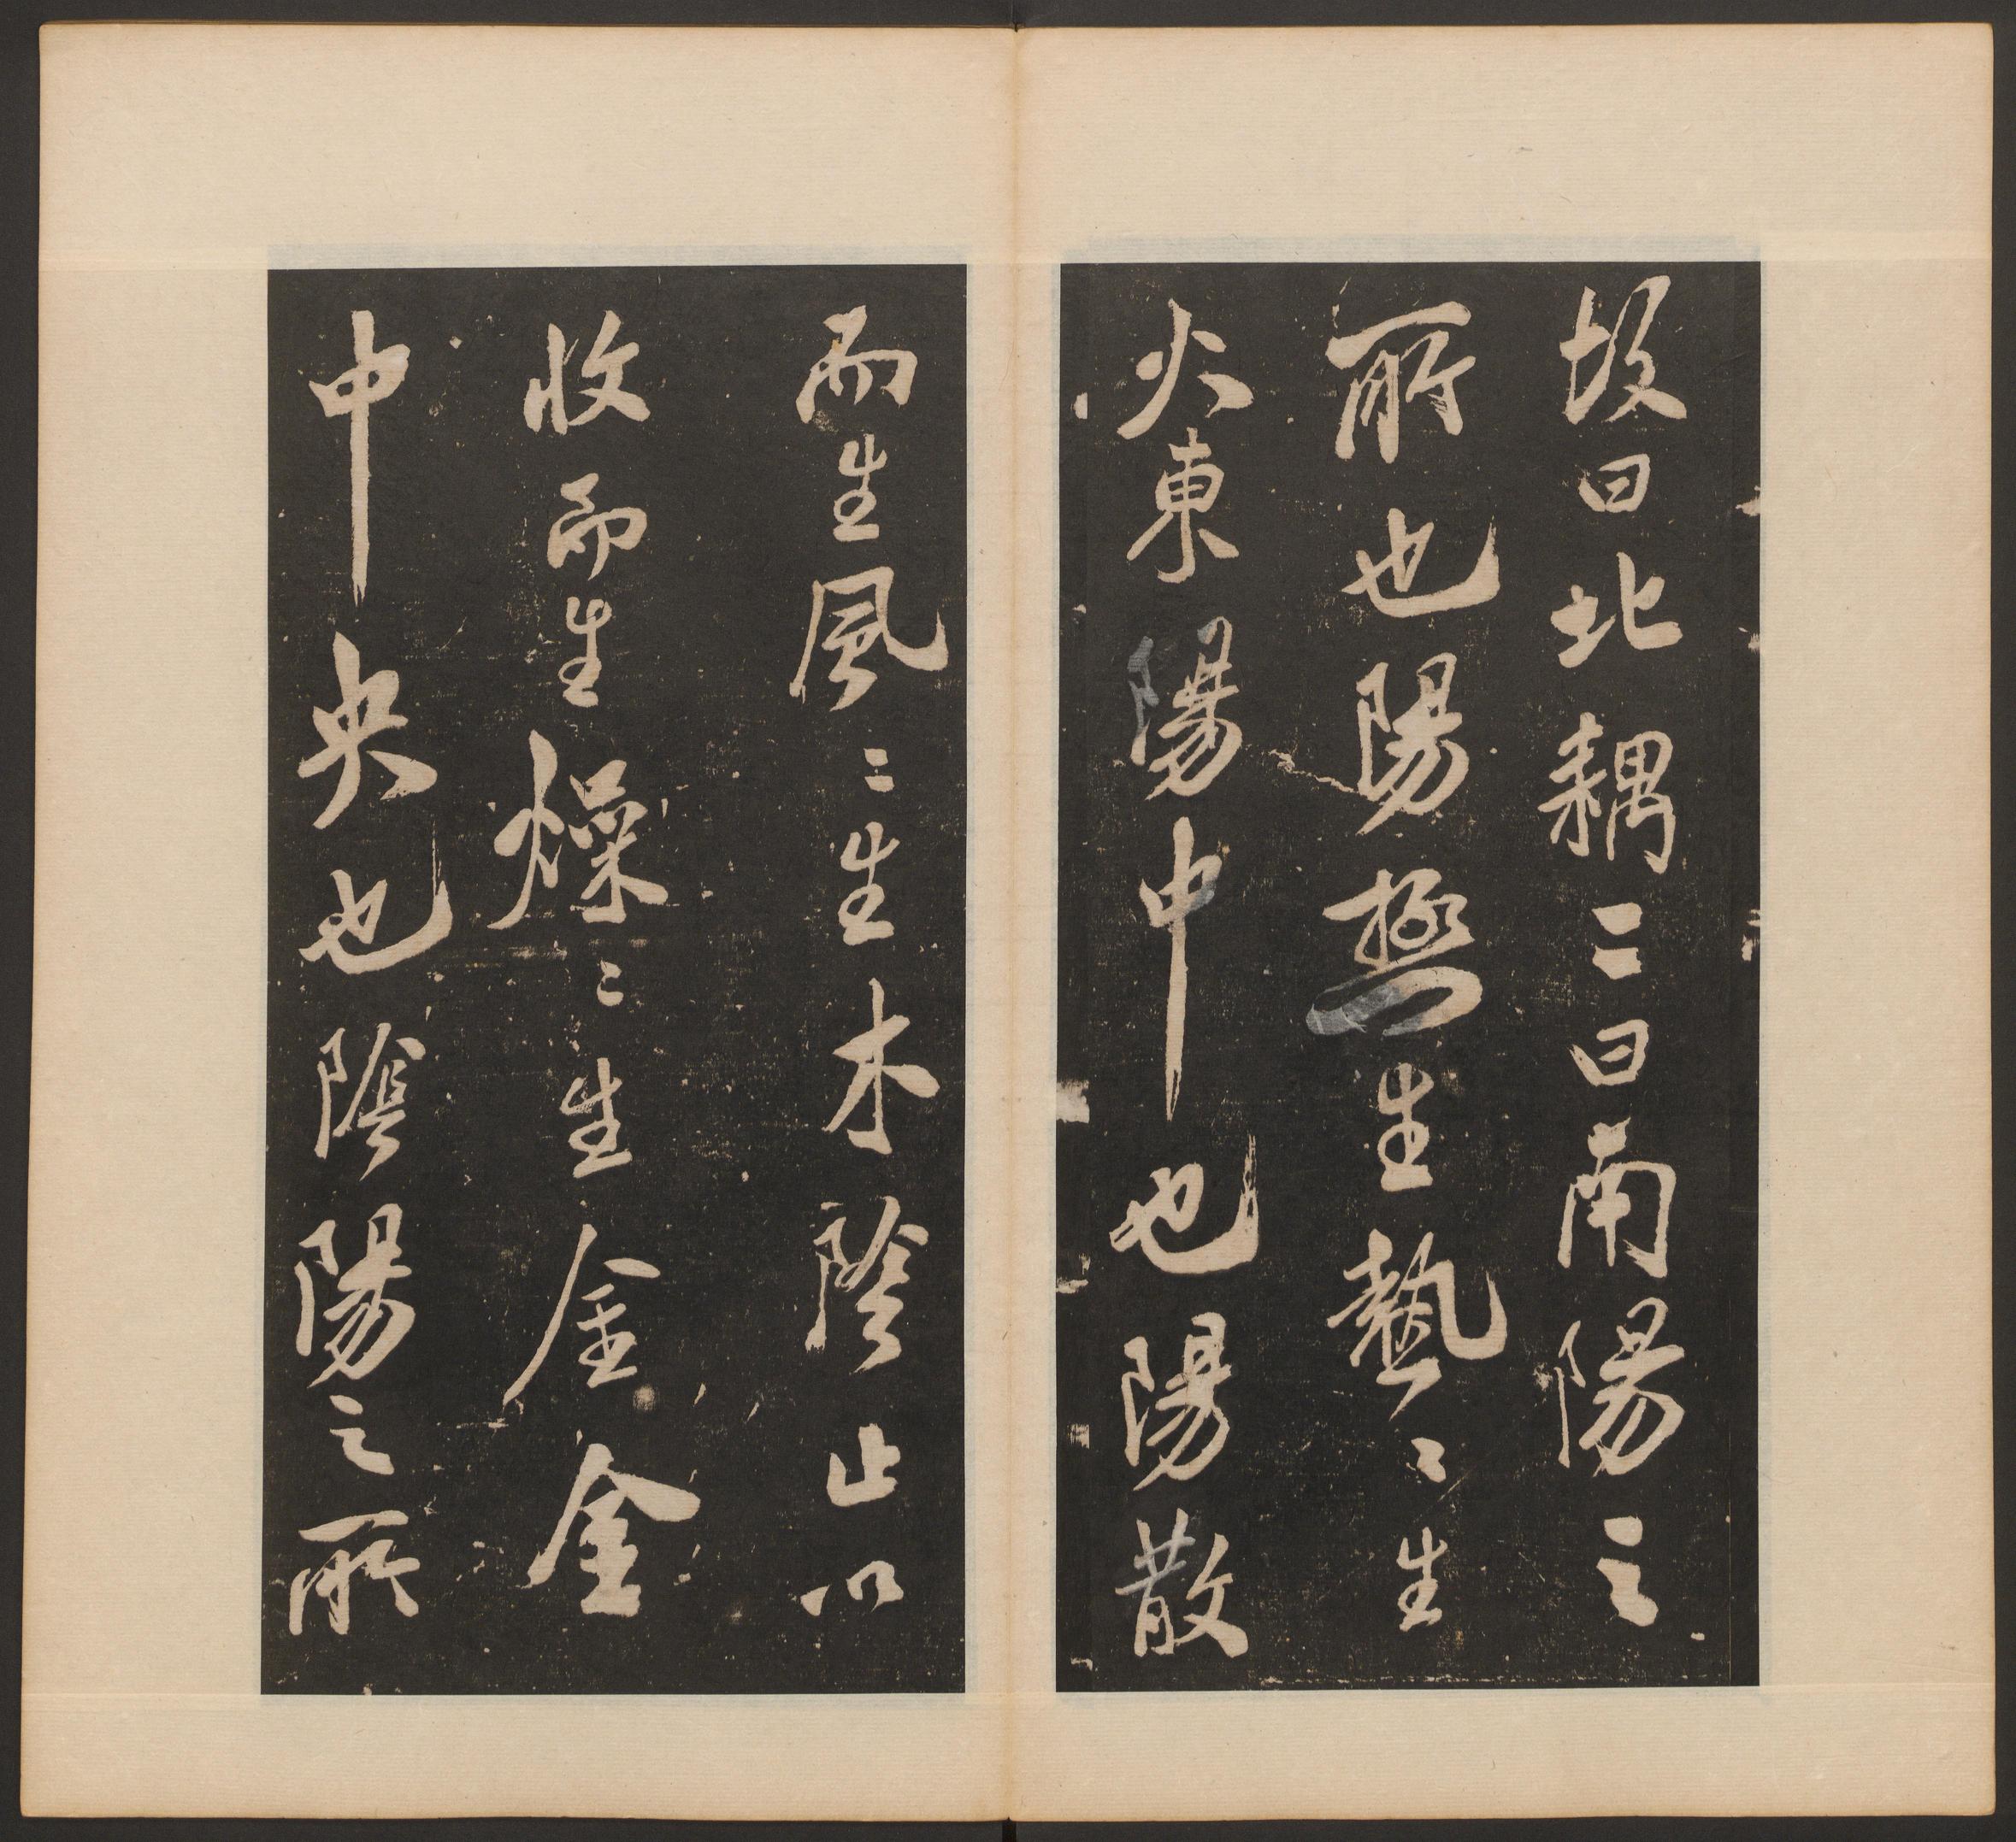 故曰北耦二曰南陽之
所也陽極生熱〻生
火東陽中也陽散
而生風〻生木陰止以
收而生燥〻生金金
中央也陰陽之所